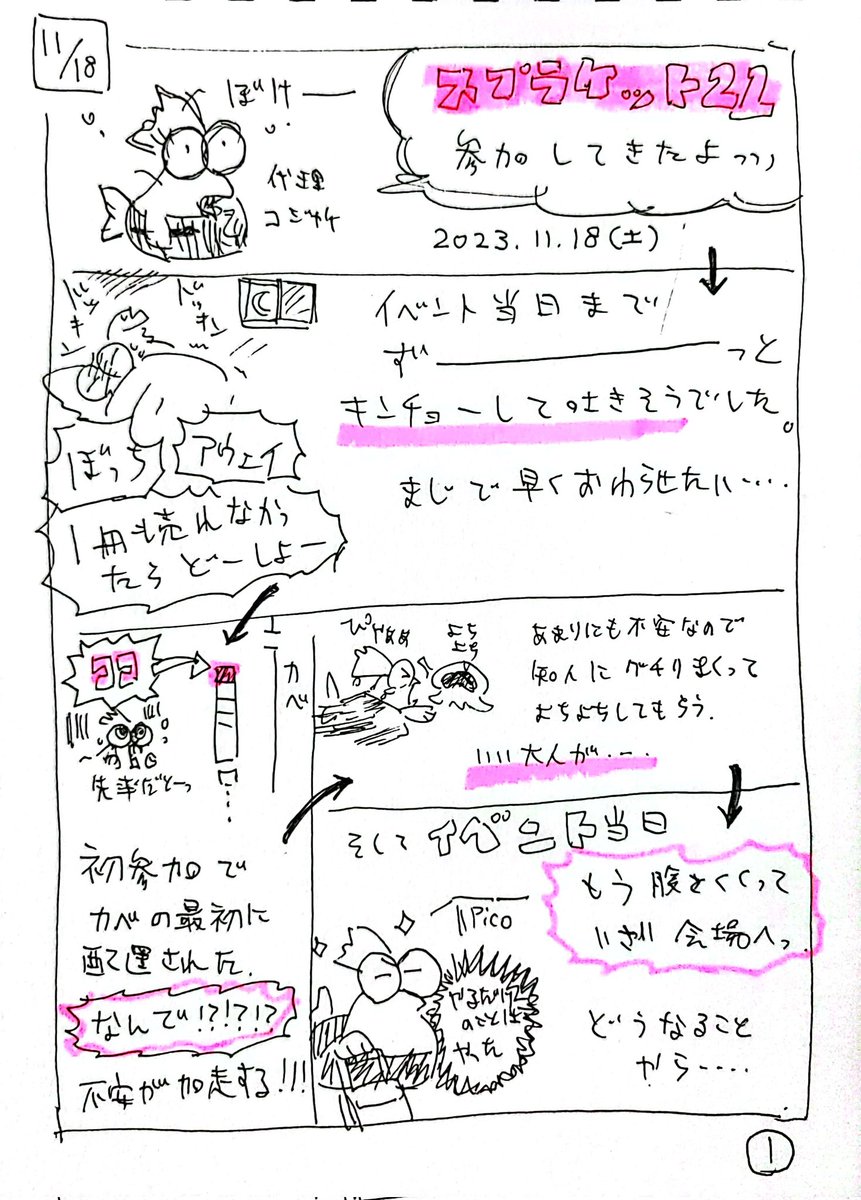 11/18
ぼけー
代理
コジャケ
スプラケット22
参加してきたよっっ
2023.11.18(土)
ドッキン
ドッキン
イベント当日まで
ずーっと
キンチョーして吐きそうでした。
まじで早くおわらせたい….
ぼっち
アウェイ
1冊も売れなかっ
たらどーしよー
ココ
カベ
先輩だとーっ
初参加で
カベの最初に
配置された.
なんで!?!?!?
不安が加速する!!!
ぴゃぁぁ
よち
よち
あまりにも不安なので
知人にグチりまくって
よちよちしてもらう.
いい大人が….
そして イベント当日
もう腹をくくって
いざ!! 会場へっ
Pico
やるだけ
のことは
やった
どうなること
やら….
1